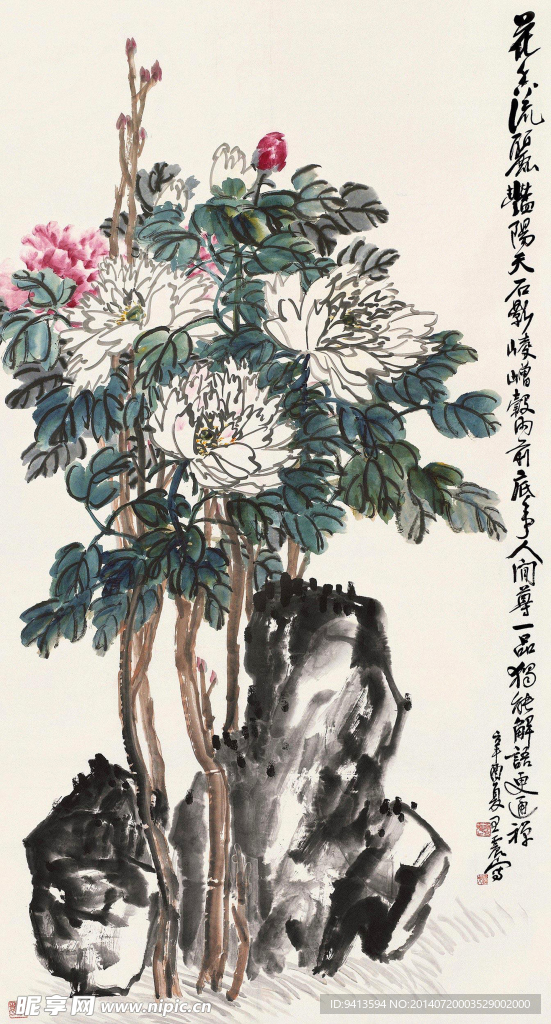 花気流麗豔陽天石影崚嶒穀雨前底事人間尊一品獨能解語更通禪
辛酉夏王震寫
昵享网 www.nipic.cn
ID:9413594 NO:20140720003529002000